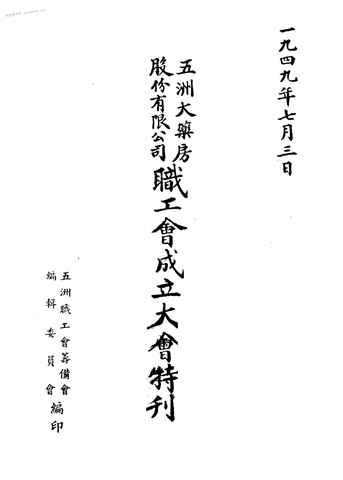 一九四九年七月三日
五洲大藥房
股份有限公司
職工會成立大會特刊
五洲職工會籌備會
編輯委員會
編印